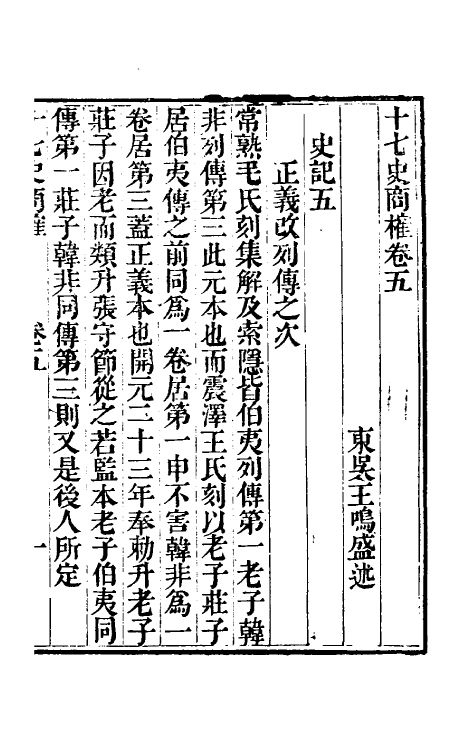 十七史商榷卷五
東吳王鳴盛述
史記五
正義改列傳之次
常熟毛氏刻集解及索隱皆伯夷列傳第一老子韓
非列傳第三此元本也而震澤王氏刻以老子莊子
居伯夷傳之前同爲一卷居第一申不害韓非爲一
卷居第三蓋正義本也開元二十三年奉勅升老子
莊子因老而類升張守節從之若監本老子伯夷同
傳第一莊子韓非同傳第三則又是後人所定
十七史商榷 卷五 一